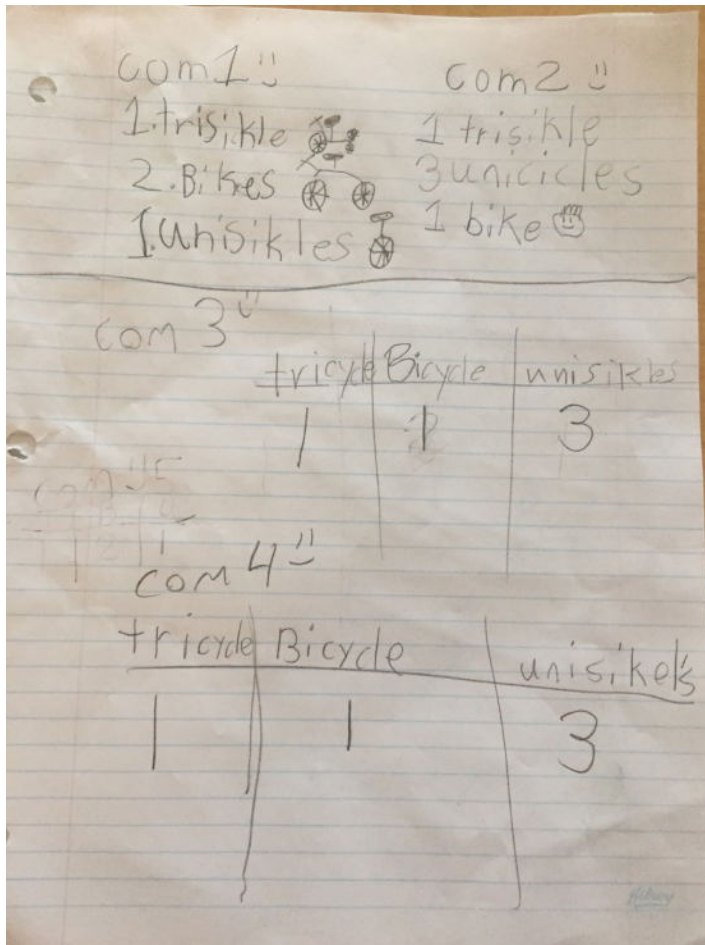 com1
1.trisikle
2.Bikes
1.unisikles
com2
1 trisikle
3 unicicles
1 bike
com 3
tricycle Bicycle unisikles
1 1 3
com 4
tricycle Bicycle unisikels
1 1 3